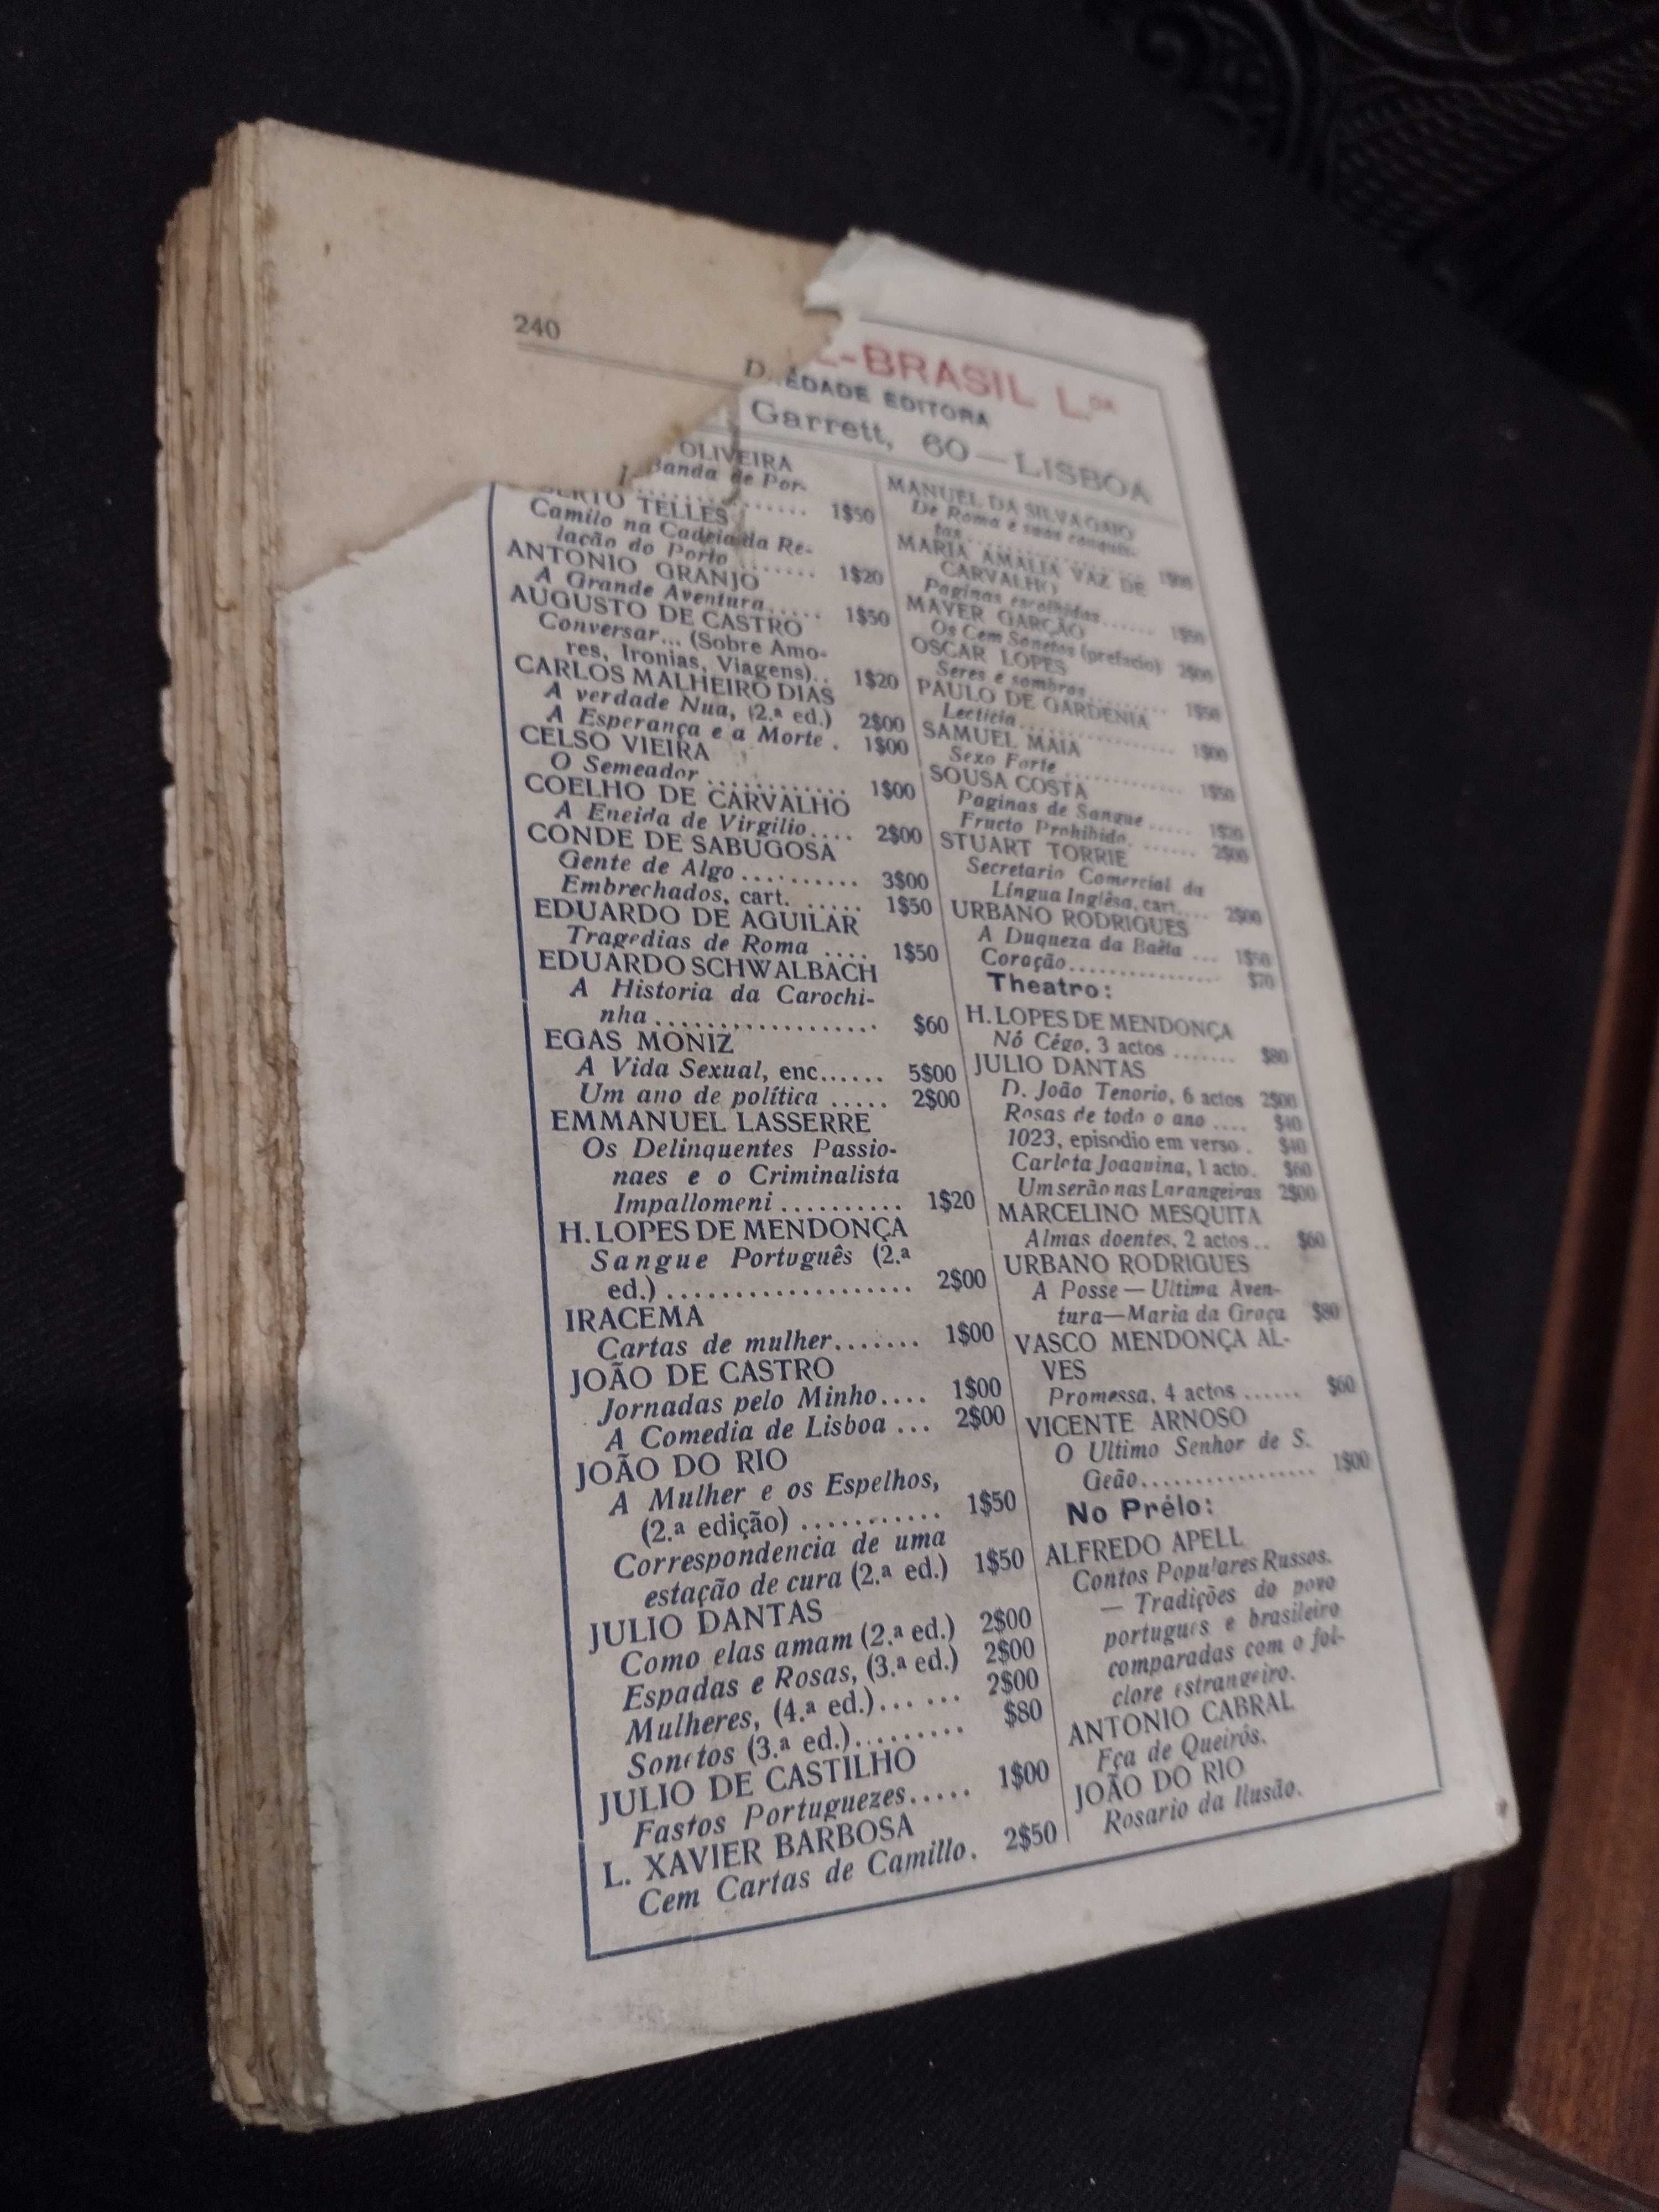 240
-BRASIL L.DA
EDADE EDITORA
Garrett, 60—LISBOA
OLIVEIRA
Banda de Por-
1$50
BERTO TELLES
Camilo na Cadeia da Re-
lação do Porto ....... 1$20
ANTONIO GRANJO
A Grande Aventura..... 1$50
AUGUSTO DE CASTRO
Conversar... (Sobre Amo-
res, Ironias, Viagens).. 1$20
CARLOS MALHEIRO DIAS
A verdade Nua, (2.ª ed.) 2$00
A Esperança e a Morte . 1$00
CELSO VIEIRA
O Semeador ............ 1$00
COELHO DE CARVALHO
A Eneida de Virgilio.... 2$00
CONDE DE SABUGOSA
Gente de Algo .......... 3$00
Embrechados, cart. ..... 1$50
EDUARDO DE AGUILAR
Tragedias de Roma .... 1$50
EDUARDO SCHWALBACH
A Historia da Carochi-
nha .................. $60
EGAS MONIZ
A Vida Sexual, enc...... 5$00
Um ano de política ..... 2$00
EMMANUEL LASSERRE
Os Delinquentes Passio-
naes e o Criminalista
Impallomeni .......... 1$20
H. LOPES DE MENDONÇA
Sangue Português (2.ª
ed.) .................... 2$00
IRACEMA
Cartas de mulher....... 1$00
JOÃO DE CASTRO
Jornadas pelo Minho.... 1$00
A Comedia de Lisboa ... 2$00
JOÃO DO RIO
A Mulher e os Espelhos,
(2.ª edição) ........... 1$50
Correspondencia de uma
estação de cura (2.ª ed.) 1$50
JULIO DANTAS
Como elas amam (2.ª ed.) 2$00
Espadas e Rosas, (3.ª ed.) 2$00
Mulheres, (4.ª ed.)...... 2$00
Sonetos (3.ª ed.)......... $80
JULIO DE CASTILHO
Fastos Portuguezes..... 1$00
L. XAVIER BARBOSA
Cem Cartas de Camillo. 2$50
MANUEL DA SILVA GAIO
De Roma e suas conquis-
tas
MARIA AMALIA VAZ DE
CARVALHO
Paginas escolhidas...... 1$50
MAYER GARÇÃO
Os Cem Sonetos (prefacio) 2$00
OSCAR LOPES
Seres e sombras......... 1$50
PAULO DE GARDENIA
Lecticia................ 1$00
SAMUEL MAIA
Sexo Forte ............ 1$50
SOUSA COSTA
Paginas de Sangue ..... 1$20
Fructo Prohibido. ...... 2$00
STUART TORRIE
Secretario Comercial da
Língua Inglêsa, cart.... 2$00
URBANO RODRIGUES
A Duqueza da Baêta ... 1$50
Coração................ $70
Theatro:
H. LOPES DE MENDONÇA
Nó Cégo, 3 actos ....... $80
JULIO DANTAS
D. João Tenorio, 6 actos 2$00
Rosas de todo o ano .... $40
1023, episodio em verso . $40
Carlota Joaquina, 1 acto. $60
Um serão nas Larangeiras 2$00
MARCELINO MESQUITA
Almas doentes, 2 actos .. $60
URBANO RODRIGUES
A Posse — Ultima Aven-
tura—Maria da Graça $80
VASCO MENDONÇA AL-
VES
Promessa, 4 actos ...... $60
VICENTE ARNOSO
O Ultimo Senhor de S.
Geão.................. 1$00
No Prélo:
ALFREDO APELL
Contos Populares Russos.
— Tradições do povo
portugues e brasileiro
comparadas com o fol-
clore estrangeiro.
ANTONIO CABRAL
Eça de Queirós.
JOÃO DO RIO
Rosario da Ilusão.